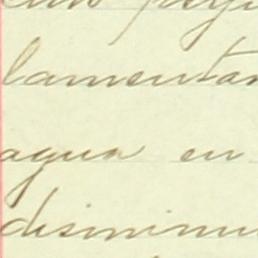 lamentar
agua en
disminu